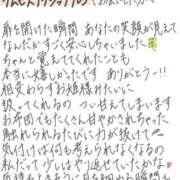 扉を開けた瞬間 あなたの笑顔が見えて
なんだかすごく安心しちゃいました
ちゃんと覚えててくれたことも
本当に嬉しかったです ありがとうー!!
相変わらずお姫様みたいに
扱ってくれるの つい甘えてしまいます
お布団でたくさん甘やかされちゃった
触れられるたびに力が抜けて
気付けば何も考えられなくなるの
私だって少しはやり返せていたかな